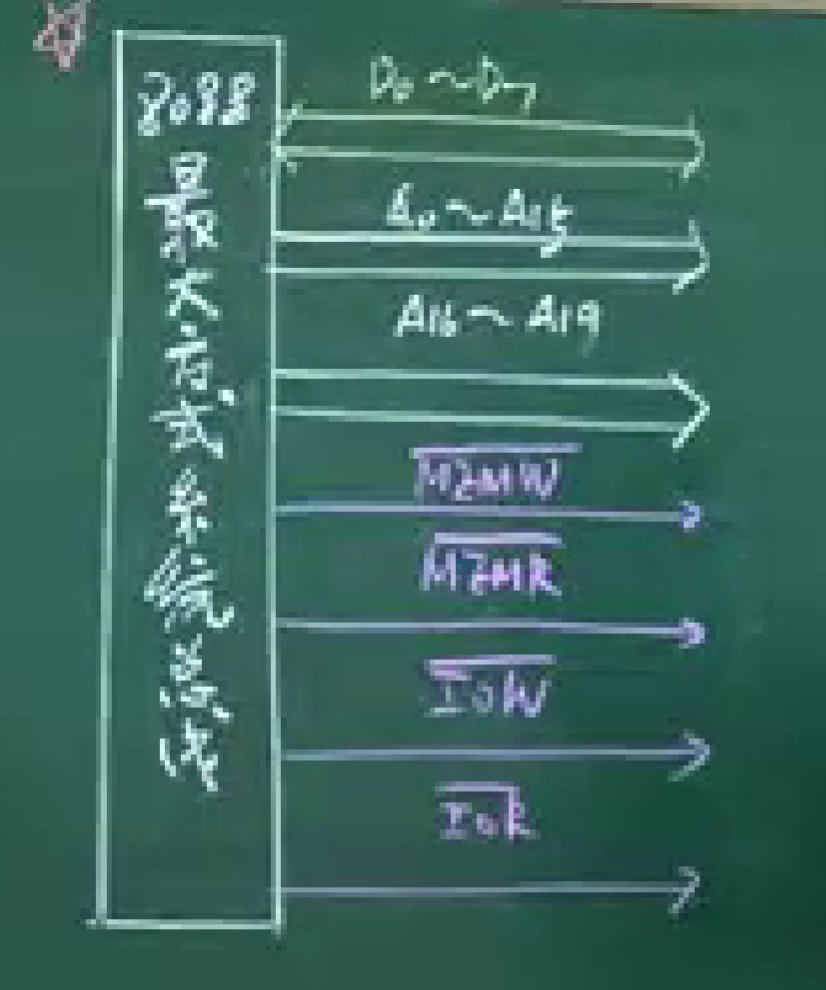 8088
最大方式系统总线
D₀~D₇
A₀~A₁₅
A₁₆~A₁₉
M̅E̅M̅W̅
M̅E̅M̅R̅
I̅O̅W̅
I̅O̅R̅